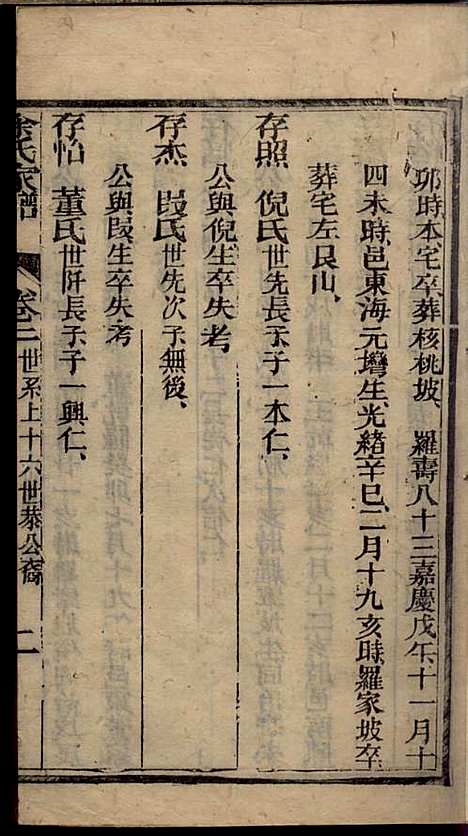 卯時本宅卒葬核桃坡、羅壽八十三嘉慶戊午十一月十
四未時邑東海元塆生光緒辛巳二月十九亥時羅家坡卒
葬宅左艮山、
存照 倪氏世先長子子一本仁、
公與倪生卒失考
存杰 段氏世先次子無後、
公與段生卒失考
存怡 董氏世阡長子子一興仁、
余氏家譜 卷二世系上十六世恭公裔 二